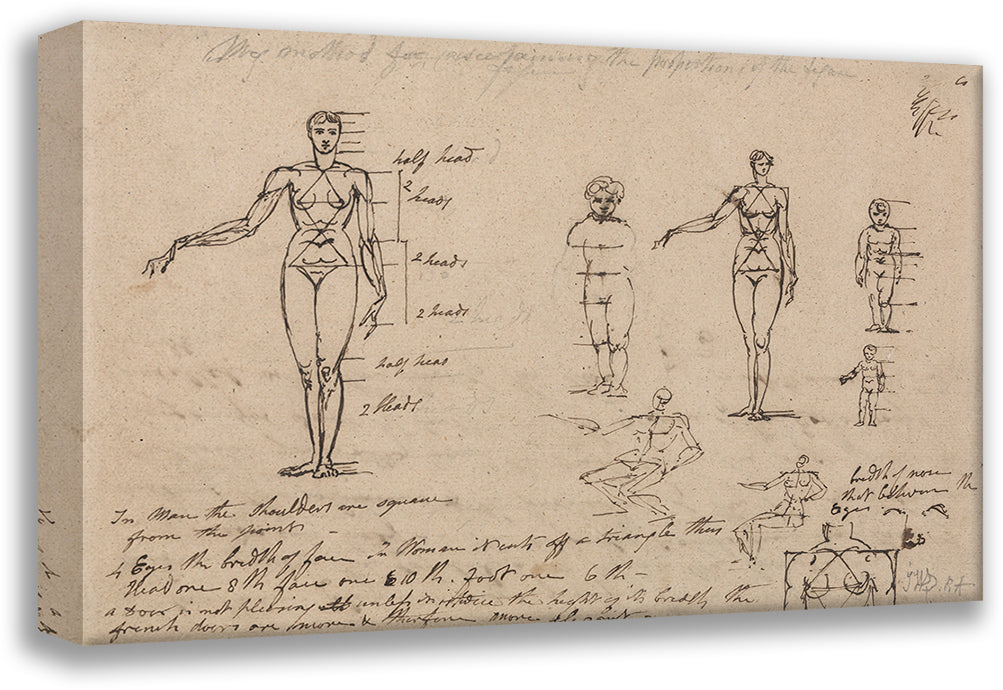 My method for ascertaining the proportion of the figure
half head
2
heads
2 heads
2 heads
half head
2 Heads
In Man the shoulders are square
from the point
4 Eyes the bredth of face in Woman it cuts off a triangle thus
Head one 8th face one 10th. foot one 6th
a Door is not pleasing unless the height its bredth the
french doors are more & therefore more
bredth of nose
that between the
Eyes